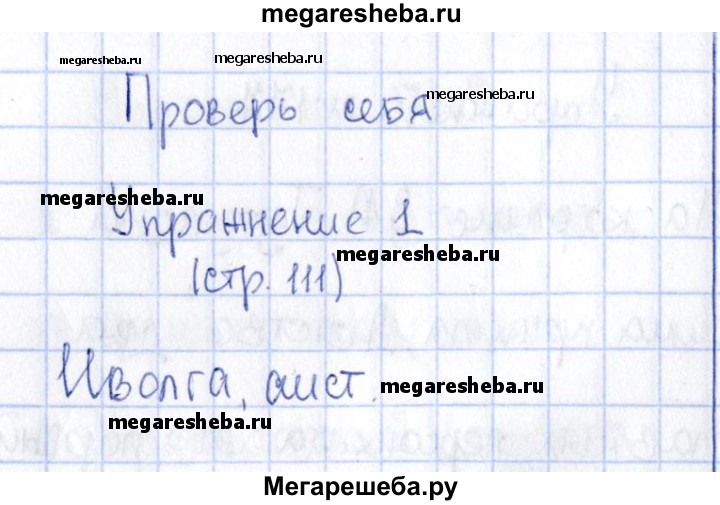 megaresheba.ru
megaresheba.ru megaresheba.ru
Проверь себя megaresheba.ru
megaresheba.ru
Упражнение 1
megaresheba.ru
(стр. 111)
Иволга, аист. megaresheba.ru
megaresheba.ru
Мегарешеба.ру